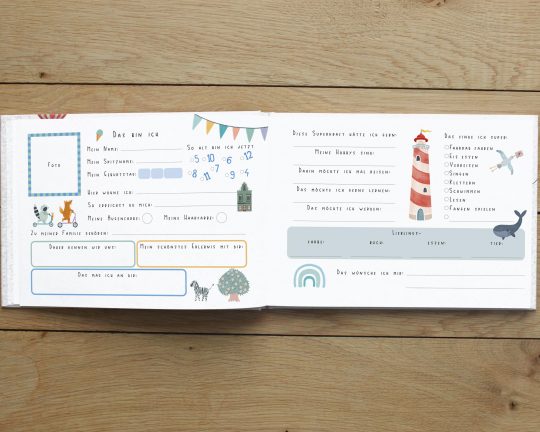 Das bin ich
Foto
Mein Name:
So alt bin ich jetzt
Mein Spitzname:
5 10 6 12
Mein Geburtstag:
8 11 7 9 4
Hier wohne ich:
So erreicht du mich:
Meine Augenfarbe:
Meine Haarfarbe:
Zu meiner Familie gehören:
Daher kennen wir uns:
Mein schönstes Erlebnis mit dir:
Das mag ich an dir:
Diese Superkraft hätte ich gern:
Meine Hobbys sind:
Dahin möchte ich mal reisen:
Das möchte ich gerne lernen:
Das möchte ich werden:
Das finde ich super:
Fahrrad fahren
Eis essen
Verreisen
Singen
Klettern
Schwimmen
Lesen
Fangen spielen
Lieblings-
Farbe:
Buch:
Essen:
Tier:
Das wünsche ich mir: